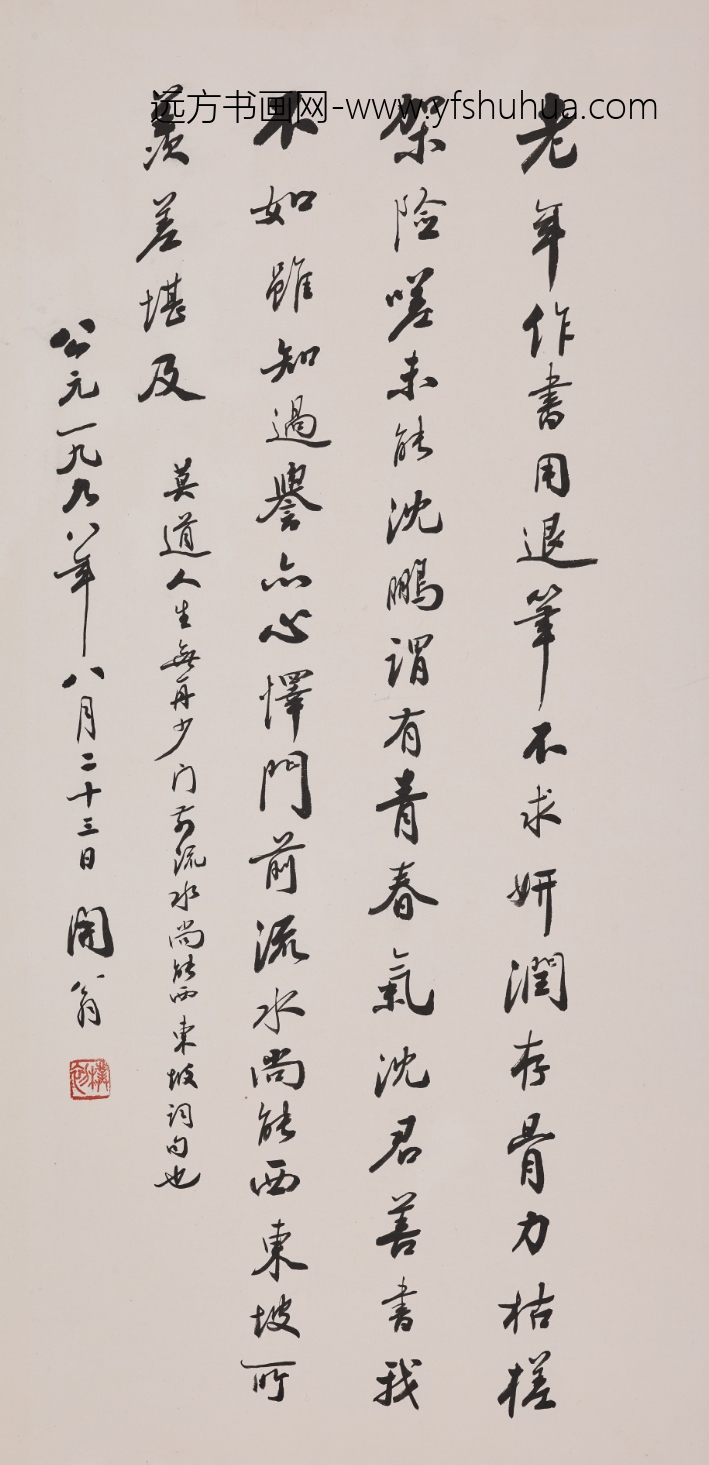 远方书画网-www.yfshuhua.com
老年作書用退筆不求妍潤存骨力枯槎
架險嗟未能沈鵬謂有青春氣沈君善書我
不如雖知過譽亦心懌門前流水尚能西東坡所
羨差堪及
莫道人生無再少门前流水尚能西東坡词句也
公元一九九八年八月二十三日
閑翁